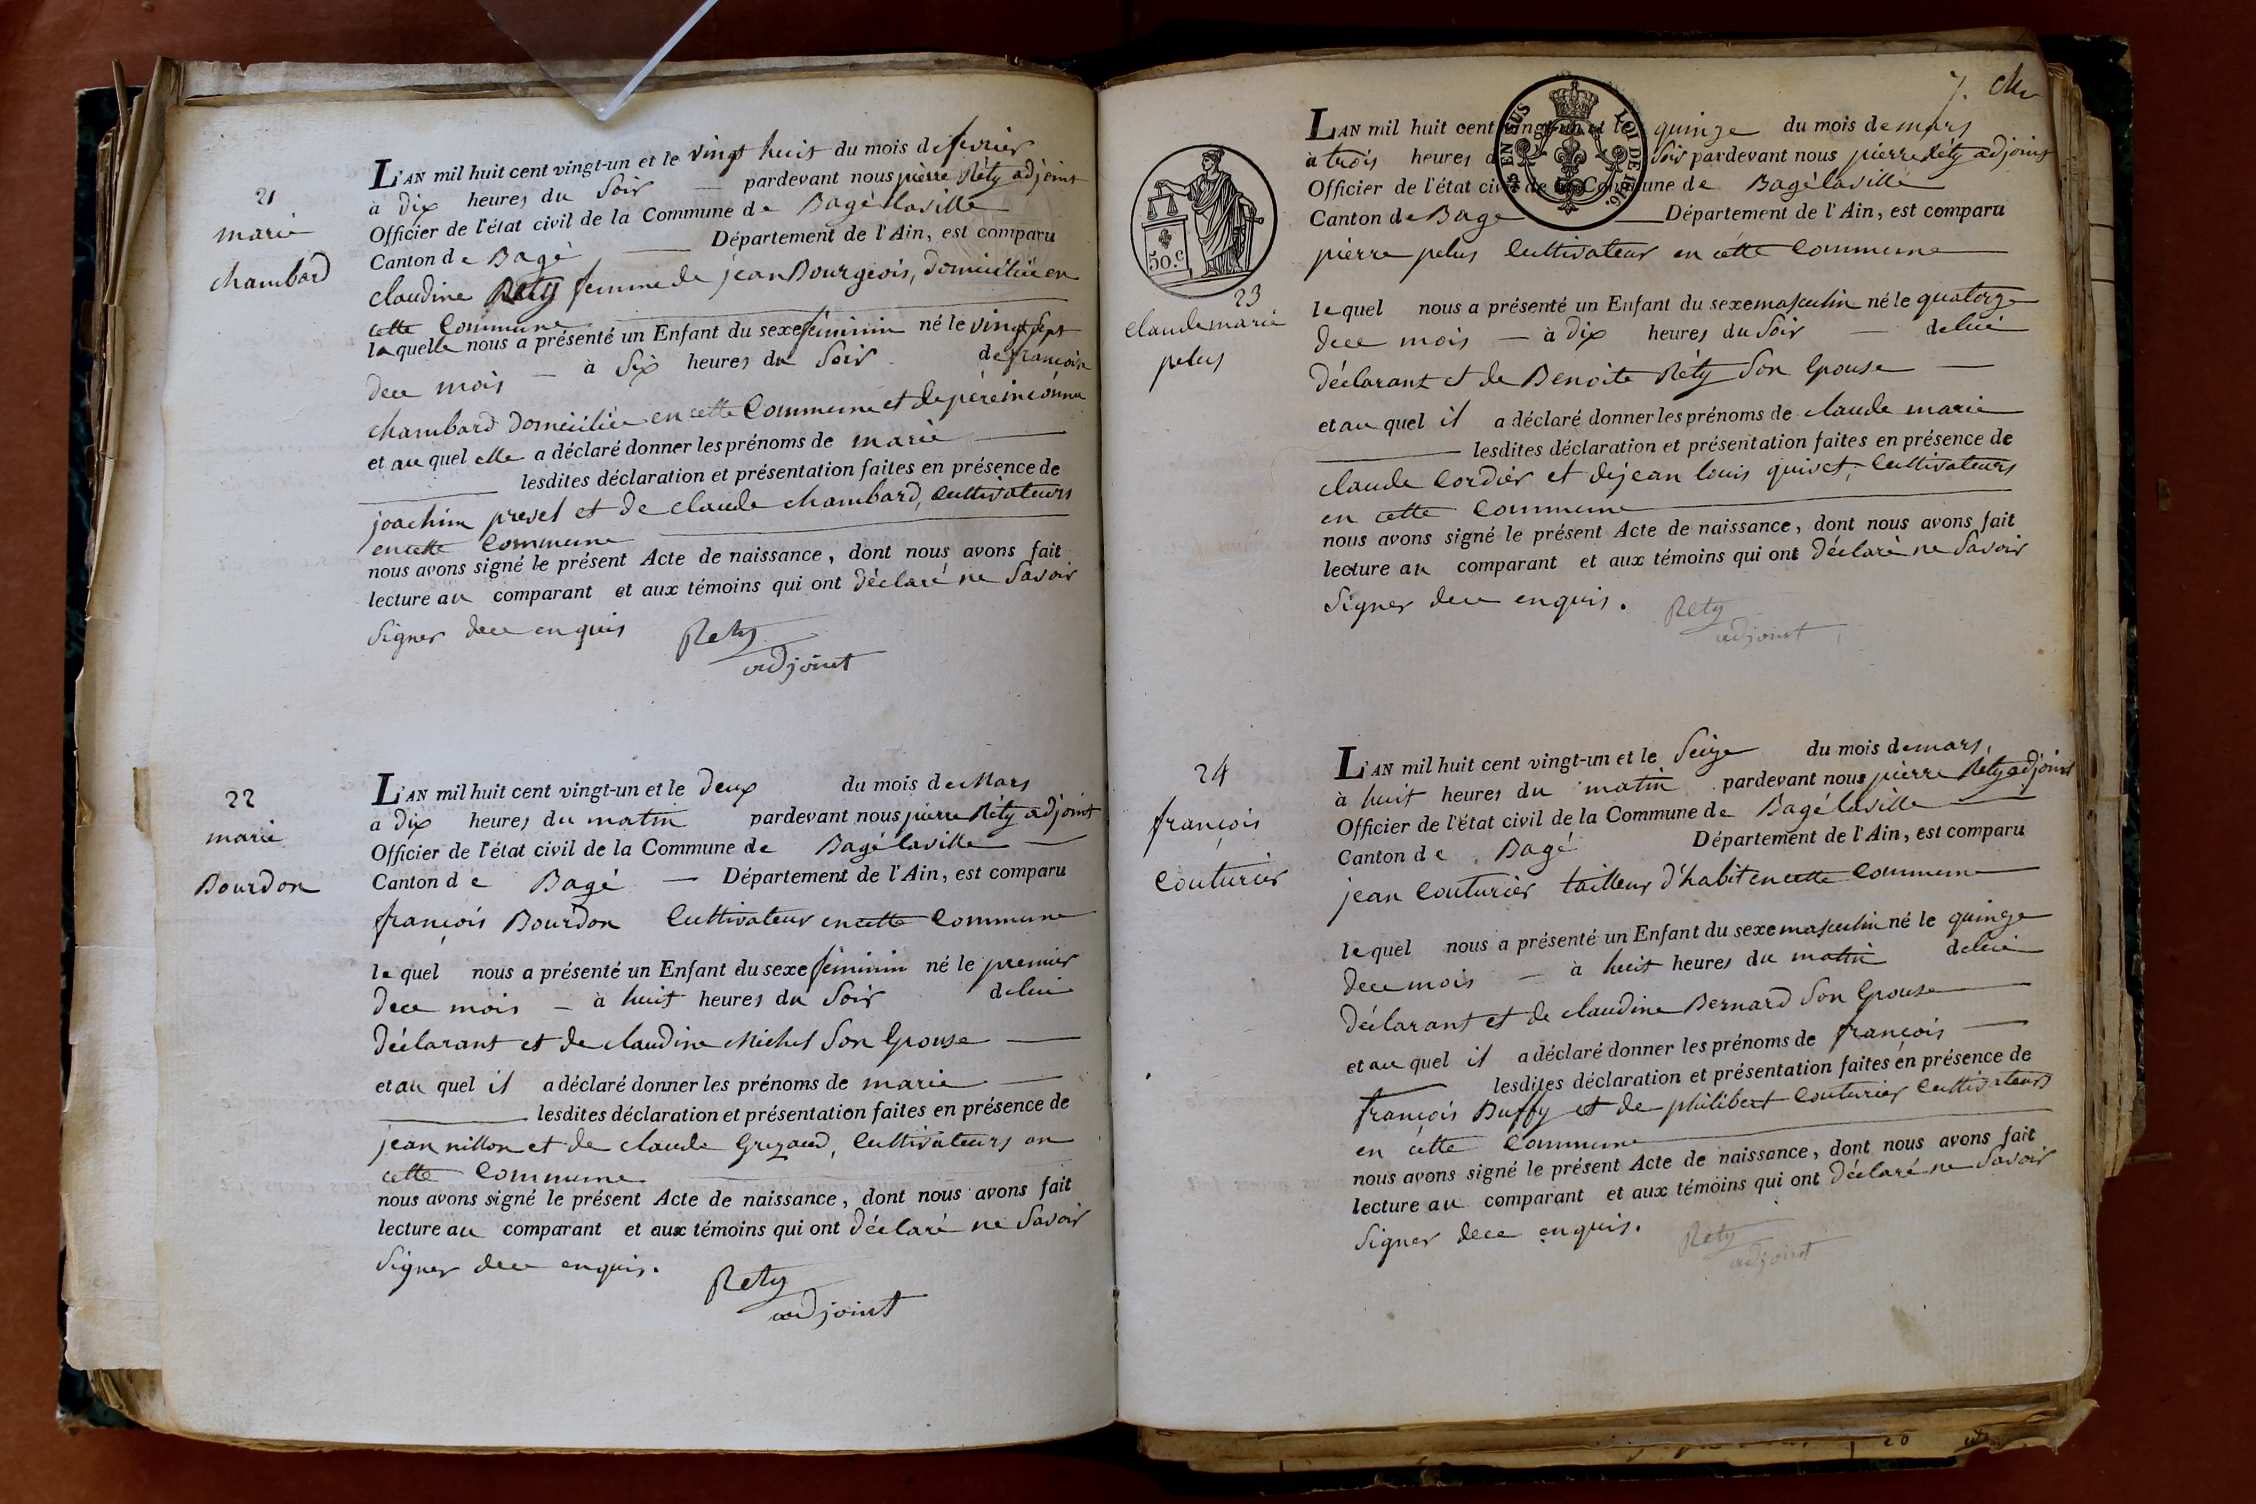 21
marie
chambard
L'AN mil huit cent vingt-un et le vingt huit du mois de fevrier
à dix heures du Soir — pardevant nous pierre Réty adjoint
Officier de l'état civil de la Commune de Bagé laville
Canton de Bagé — Département de l'Ain, est comparu
claudine Réty femme de jean Bourgeois, domiciliée en
cette Commune
laquelle nous a présenté un Enfant du sexe féminin né le vingt Sept
dece mois — à Six heures du Soir de françoise
chambard Domiciliée en cette Commune et de père inconnu
et au quel elle a déclaré donner les prénoms de marie
lesdites déclaration et présentation faites en présence de
joachim prevel et de claude chambard, Cultivateurs
en cette Commune
nous avons signé le présent Acte de naissance, dont nous avons fait
lecture au comparant et aux témoins qui ont Déclaré ne Savoir
Signer dece enquis
Rety
adjoint
22
marie
Bourdon
L'AN mil huit cent vingt-un et le Deux du mois de Mars
a dix heures du matin pardevant nous pierre Réty adjoint
Officier de l'état civil de la Commune de Bagé laville —
Canton de Bagé — Département de l'Ain, est comparu
françois Bourdon Cultivateur en cette Commune
lequel nous a présenté un Enfant du sexe féminin né le premier
dece mois — à huit heures du Soir de lui
Déclarant et de claudine Michel Son Epouse —
et au quel il a déclaré donner les prénoms de marie —
lesdites déclaration et présentation faites en présence de
jean nillon et de claude Grezaud, Cultivateurs en
cette Commune
nous avons signé le présent Acte de naissance, dont nous avons fait
lecture au comparant et aux témoins qui ont Déclaré ne Savoir
Signer dece enquis.
Rety
adjoint
7.
50.c
23
claude marie
pelus
L'AN mil huit cent vingt-un et le quinze du mois de mars
à trois heures du Soir pardevant nous pierre Réty adjoint
Officier de l'état civil de la Commune de Bagé laville
Canton de Bagé — Département de l'Ain, est comparu
LOI DE 1816.
pierre pelus Cultivateur en cette Commune
lequel nous a présenté un Enfant du sexe masculin né le quatorze
dece mois — à dix heures du Soir — de lui
Déclarant et de Benoite Réty Son Epouse —
et au quel il a déclaré donner les prénoms de claude marie
lesdites déclaration et présentation faites en présence de
claude Cordier et de jean louis quivet, Cultivateurs
en cette Commune
nous avons signé le présent Acte de naissance, dont nous avons fait
lecture au comparant et aux témoins qui ont Déclaré ne Savoir
Signer dece enquis.
Rety
adjoint
24
françois
Couturier
L'AN mil huit cent vingt-un et le Seize du mois de mars,
à huit heures du matin pardevant nous pierre Réty adjoint
Officier de l'état civil de la Commune de Bagé laville
Canton de Bagé Département de l'Ain, est comparu
jean Couturier tailleur d'habit en cette Commune
lequel nous a présenté un Enfant du sexe masculin né le quinze
dece mois — à huit heures du matin de lui
Déclarant et de claudine Bernard Son Epouse
et au quel il a déclaré donner les prénoms de françois —
lesdites déclaration et présentation faites en présence de
françois Buffy et de philibert Couturier Cultivateurs
en cette Commune
nous avons signé le présent Acte de naissance, dont nous avons fait
lecture au comparant et aux témoins qui ont Déclaré ne Savoir
Signer dece enquis.
Rety
adjoint